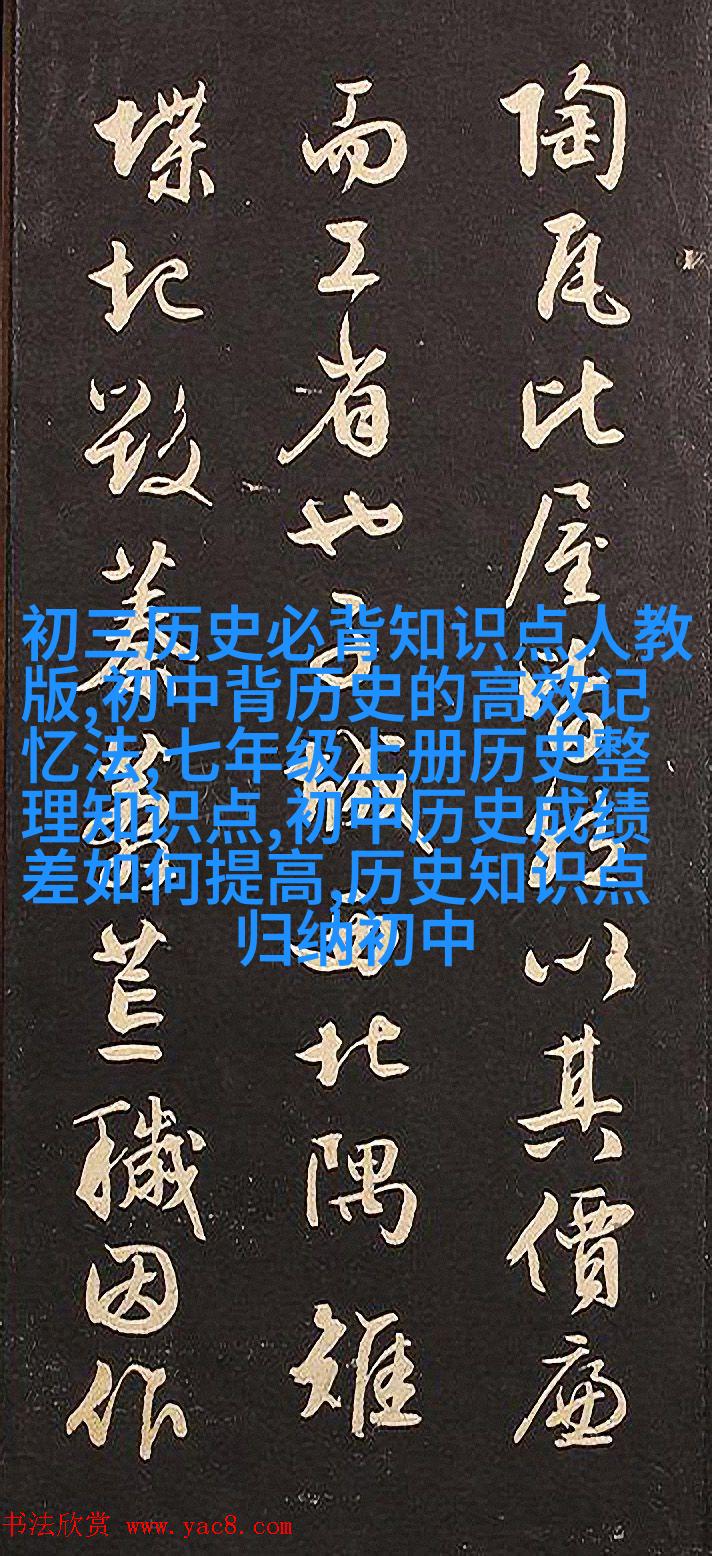 陶瓦比屋皆然以其價廉
而工省也子城西北隅雉
堞圮毀蓁莽荒穢因作
初三历史必背知识点人教
版,初中背历史的高效记
忆法,七年级上册历史整
理知识点,初中历史成绩
差如何提高,历史知识点
归纳初中
书法欣赏 www.yac8.com